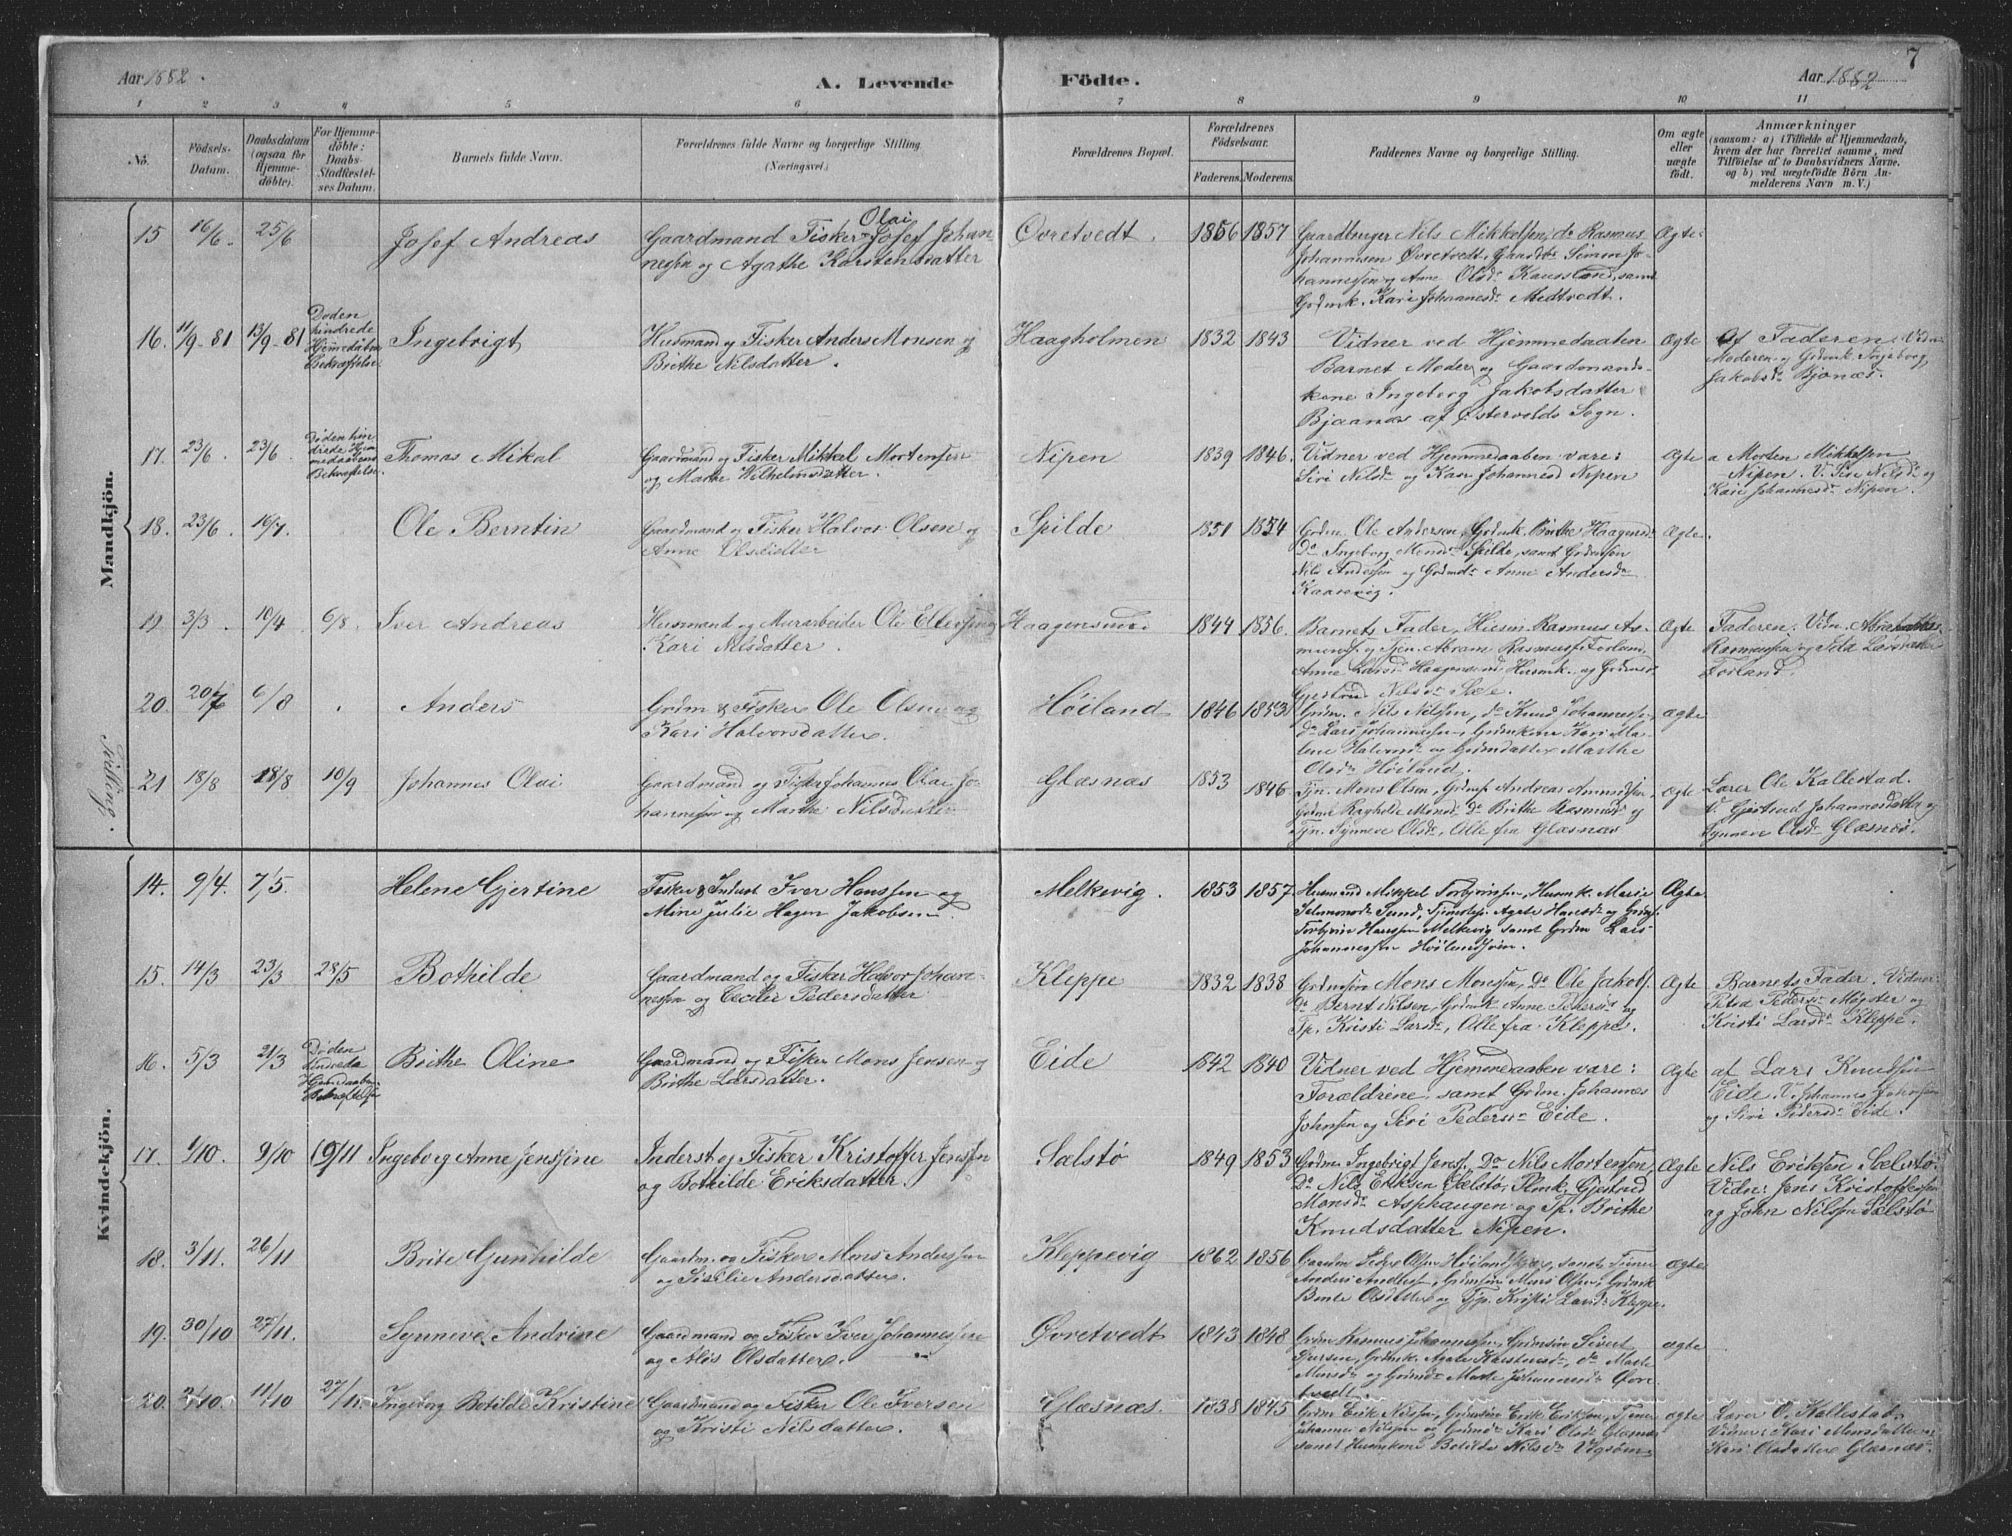 Aar 1882.
A. Levende
Födte.
Aar 1882
7
1 2 3 4 5 6 7 8 9 10 11
No.
Födsels-
Datum.
Daabsdatum
(ogsaa for
Hjemme-
döbte).
For Hjemme-
döbte:
Daabs-
Stadfæstel-
ses Datum.
Barnets fulde Navn.
Forældrenes fulde Navne og borgerlige Stilling.
(Næringsvei.)
Forældrenes Bopæl.
Forældrenes
Födselsaar.
Faderens. Moderens.
Faddernes Navne og borgerlige Stilling.
Om ægte
eller
uægte
födt.
Anmærkninger
(saasom: a) i Tilfælde af Hjemmedaab,
hvem der har forrettet samme, med
Tilföielse af to Daabsvidners Navne,
og b) ved uægtefödte Börn An-
melderens Navn m. V.)
Mandkjön.
15 16/6. 25/6 Josef Andreas
Olai
Gaardmand Fisker Josef Johan
nessen og Agathe Karstensdatter
Øvretvedt. 1856 1857
Gaardbruger Nils Mikkelsen, do Rasmus
Johannesen Øvretvedt, Simon Jo-
hannessen og Ane Olsdr samt
Grdmk. Kari Johannesdr Medtvedt.
Ægte
16. 11/9-81 13/9-81
Døden
hindrede
Hjemmedaabens
Bekræftelse
Ingebrigt
Husmand og Fisker Anders Monsen og
Brithe Nilsdatter.
Haagholmen 1832 1843
Vidner ved Hjemmedaaben
Barnet Moder og Gaardmands-
kone Ingeborg Jakobsdatter
Bjaanæs af Østervolds Sogn.
Ægte
Af Faderen. Vidn.
Moderen og Grdmk. Ingeborg
Jakobsdr Bjonæs.
17. 23/6 23/6
Døden hin
drede Hjem
medaabens
Bekræftelse
Thomas Mikal
Gaardmand og Fisker Mikkel Mortensen
og Marthe Wilhelmsdatter.
Nipen 1839 1846.
Vidner ved Hjemmedaaben vare:
Siri Nilsdr og Kari Johannesd Nipen
Ægte
a Morten Mikkelsen
Nipen. V. Siri Nilsdr og
Kari Johannesdr Nipen.
18. 23/6. 16/7. Ole Berntin
Gaardmand og Fisker Halvor Olsen og
Anne Olsdatter
Spilde 1851 1854
Grdm. Ole Andersen, Grdmk. Brithe Haagensdr
do Ingeborg Monsdr Spilde, samt Grdmsøn
Nils Andersen og Grdmdr Anne Andersdr
Kaarevig.
Ægte.
19 3/3. 10/4 6/8. Iver Andreas
Husmand og Murarbeider Ole Ellevsen og
Kari Nilsdatter.
1844 1856.
Barnets Fader, Husm. Rasmus As-
mundsen og Tjen. Abram Rasmussen Forland,
Ægte
Faderen. Vidn.
Rasmussen og
Forland.
20. 20/7 6/8 Anders
Grdm & Fisker Ole Olsen og
Kari Halvorsdatter.
Høiland 1846 1853
Gjertrud Nilsdr
Grdm. Nils Nilssen, do Knud Johannessen,
do Lars Johannessen, Grdmkone Kari Ma-
lene Halvorsdr og Grdmdatter Marthe
Olsdr Høiland.
ægte
21 18/8 18/8 10/9 Johannes Olai
Gaardmand og Fisker Johannes Olai Jo-
hannessen og Marthe Nilsdatter
Glæsnæs 1853 1846.
Tjn. Mons Olsen, Andreas
Brithe Rasmusdr og
Tjn. Synneve Olsdr, Alle fra Glæsnæs
Ægte
Lærer Ole Kallestad.
V. Gjertrud Johannesdatter og
Synneve Olsdr Glæsnæs.
Kvindekjön.
14. 9/4. 7/5. Helene Gjertine
Fisker & Inderst Iver Hanssen og
Mine Julie Hagen Jakobsen.
Melkevig. 1853 1857.
Husmand Mikkel Torbjørnsen, Husmk. Marie
Salamonsdr Sund, Agate Hansdr og Grdm.
Torbjørn Hanssen Melkevig samt Grdm Lars
Johannessen
Ægte.
15. 14/3 23/3 28/5 Bothilde
Gaardmand og Fisker Halvor Johan-
nessen og Cecilie Pedersdatter
Kleppe 1832 1838
Grdmsøn Mons Monsen, do Ole Jakobs.
do Bernt Nilsen, Grdmk Anne Petersdr og
Tp. Kristi Larsdr, Alle fra Kleppe.
Ægte
Barnets Fader. Vidner
Pedersdr Møgster og
Kristi Larsdr Kleppe.
16. 5/3 21/3
Døden
Brithe Oline
Gaardmand og Fisker Mons Jensen og
Birthe Larsdatter.
Eide 1842 1840
Vidner ved Hjemmedaaben vare:
Forældrene, samt Grdm. Johannes
Johnsen og Siri Pedersdr Eide.
Ægte
af Lars Knudsen
Eide. V. Johannes Johnsen
og Siri Pedersdr Eide.
17. 1/10. 9/10 19/11 Ingeborg Anne Jenssine
Inderst og Fisker Kristoffer Jenssen
og Bothilde Eriksdatter.
Sælstø 1849 1853
Grdm. Ingebrigt Jenss. Do Nils Mortensen,
Do Nils Eriksen Sælstø, Gjertrud
Monsdr Asphaugen og Tp. Brithe
Knudsdatter Nipen.
Ægte
Nils Eriksen Sælstø.
Vidn: Jens Kristoffersen
og John Nilsen Sælstø
18. 3/11. 26/11 Brite Gunhilde
Gaardm. og Fisker Mons Anderssen
og Sisilie Andersdatter.
Kleppevig 1862 1856
Gaardm Peder Olsen samt Tjener
Anders Anderssen, Grdmsøn Mons Olsen, Grdmk
Bente Olsdatter og Tjp. Kristi Larsdr Kleppe.
ægte
19. 30/10 27/11. Synneve Andrine
Gaardmand og Fisker Iver Johannessen
og Alis Olsdatter.
Øvretvedt 1843 1848
Grdm Rasmus Johannessen, Grdmsøn Sivert
Iversen, Grdmk. Agate Karstensdr, do Marte
Monsdr og Grdmdr Marte Johannesdr Øvre-
tvedt.
ægte
20. 2/10. 11/10 27/11. Ingeborg Botilde Kristine
Gaardmand og Fisker Ole Iversen
og Kristi Nilsdatter.
Glæsnæs. 1838 1845
Grdm Erik Nilssen, Grdmsøn Erik Eriksen, Tjener
Johannes Nilssen og Grdmdr Kari Olsdr Glæsnæs
samt Husmkone Botilde Nilsdr
ægte
Lærer O. Kallestad,
Vidner: Kari Monsdatter og
Kari Olsdatter Glæsnæs.